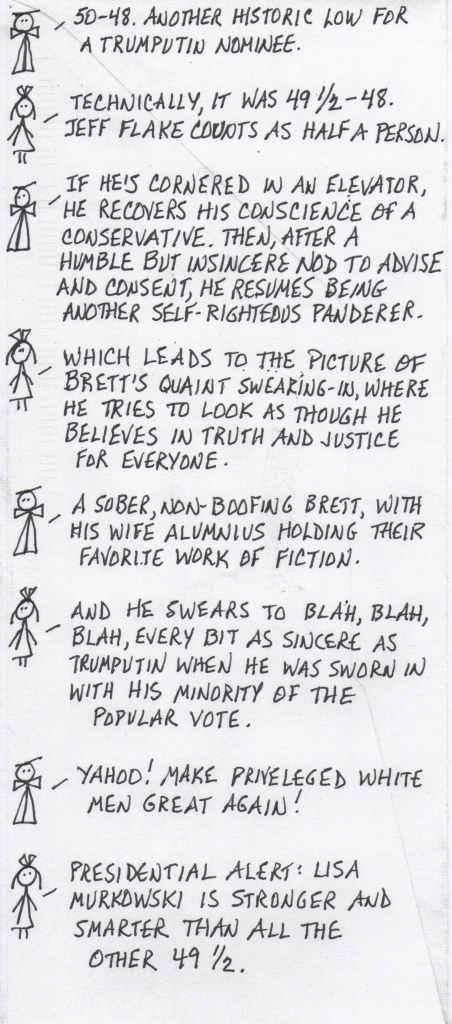 50-48. ANOTHER HISTORIC LOW FOR
A TRUMPUTIN NOMINEE.
TECHNICALLY, IT WAS 49 1/2-48.
JEFF FLAKE COUNTS AS HALF A PERSON.
IF HE'S CORNERED IN AN ELEVATOR,
HE RECOVERS HIS CONSCIENCE OF A
CONSERVATIVE. THEN, AFTER A
HUMBLE BUT INSINCERE NOD TO ADVISE
AND CONSENT, HE RESUMES BEING
ANOTHER SELF-RIGHTEOUS PANDERER.
WHICH LEADS TO THE PICTURE OF
BRETT'S QUAINT SWEARING-IN, WHERE
HE TRIES TO LOOK AS THOUGH HE
BELIEVES IN TRUTH AND JUSTICE
FOR EVERYONE.
A SOBER, NON-BOOFING BRETT, WITH
HIS WIFE ALUMNIUS HOLDING THEIR
FAVORITE WORK OF FICTION.
AND HE SWEARS TO BLAH, BLAH,
BLAH, EVERY BIT AS SINCERE AS
TRUMPUTIN WHEN HE WAS SWORN IN
WITH HIS MINORITY OF THE
POPULAR VOTE.
YAHOO! MAKE PRIVELEGED WHITE
MEN GREAT AGAIN!
PRESIDENTIAL ALERT: LISA
MURKOWSKI IS STRONGER AND
SMARTER THAN ALL THE
OTHER 49 1/2.